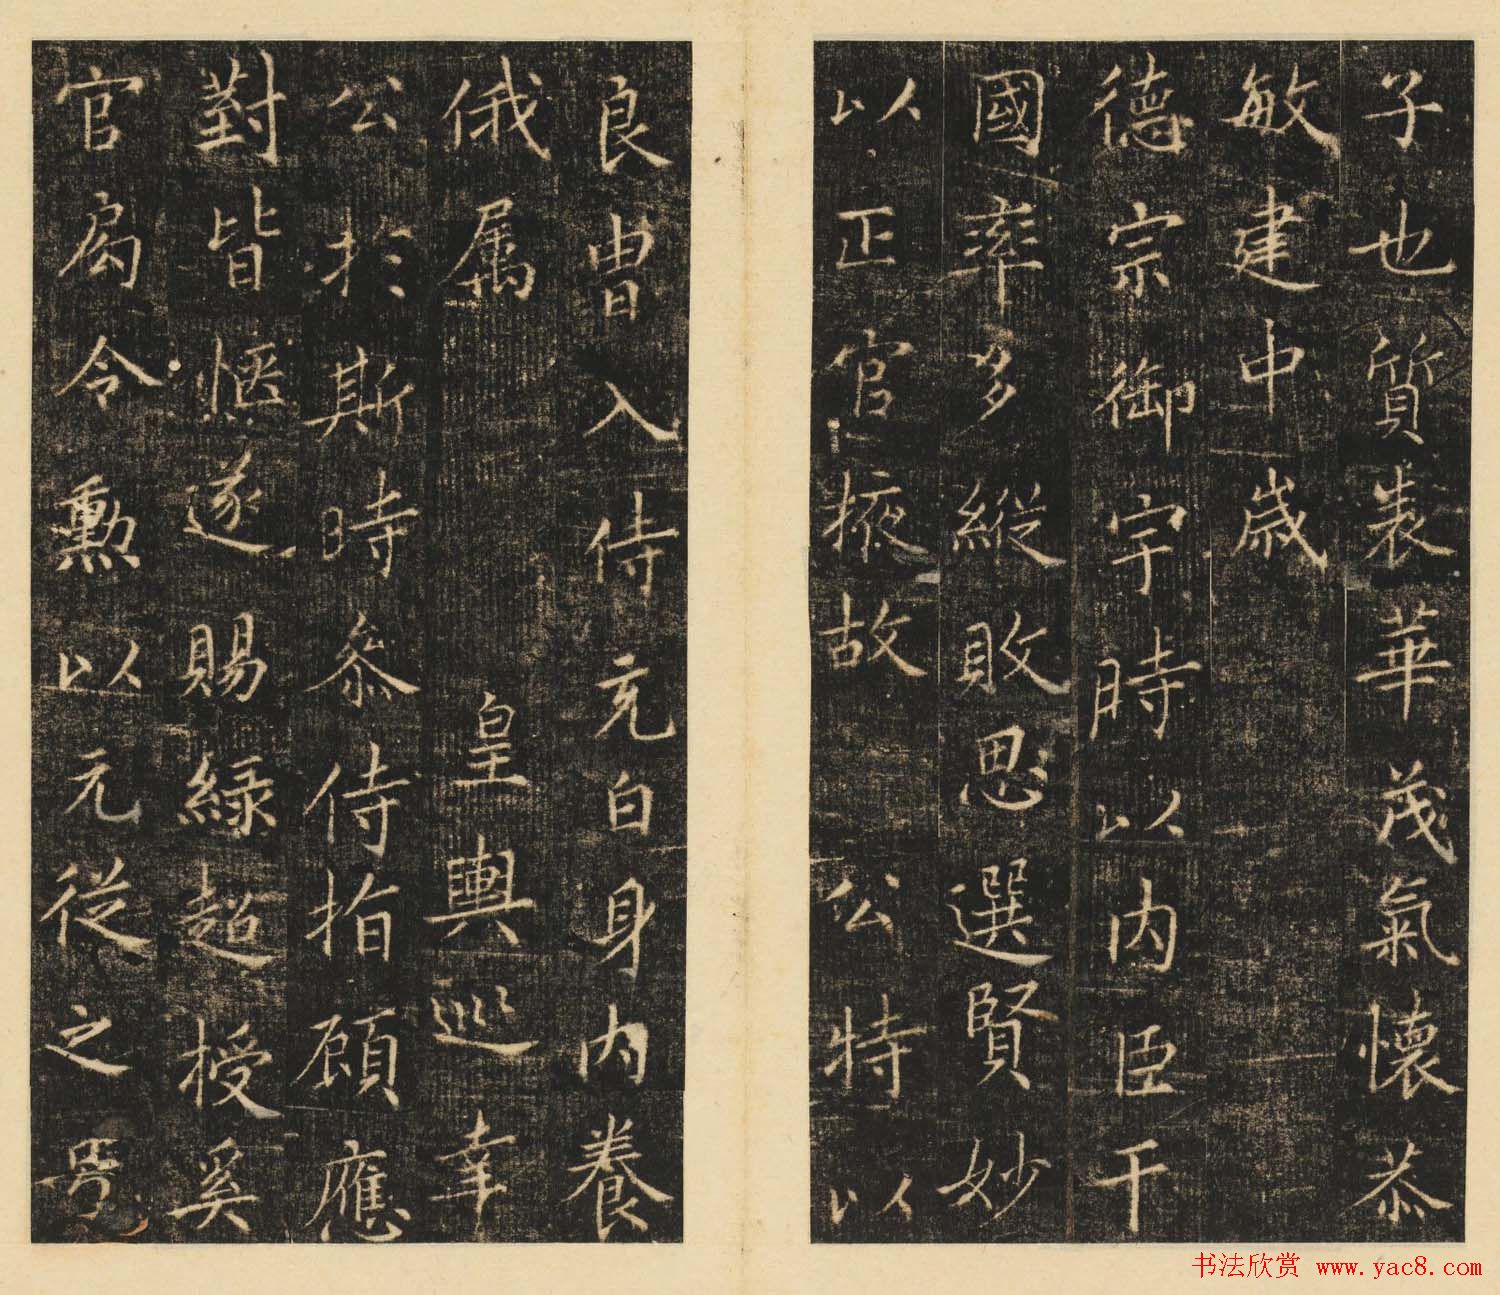 子也質裴華茂氣懷恭
敏建中歳
德宗御宇時以内臣干
國率多縱敗思選賢妙
以正官掖故公特以
良胄入侍充白身内養
俄属皇輿巡幸
公於斯時叅侍指顧應
對皆愜遂賜緑超授奚
官局令勳以元從之号
书法欣赏 www.yac8.com